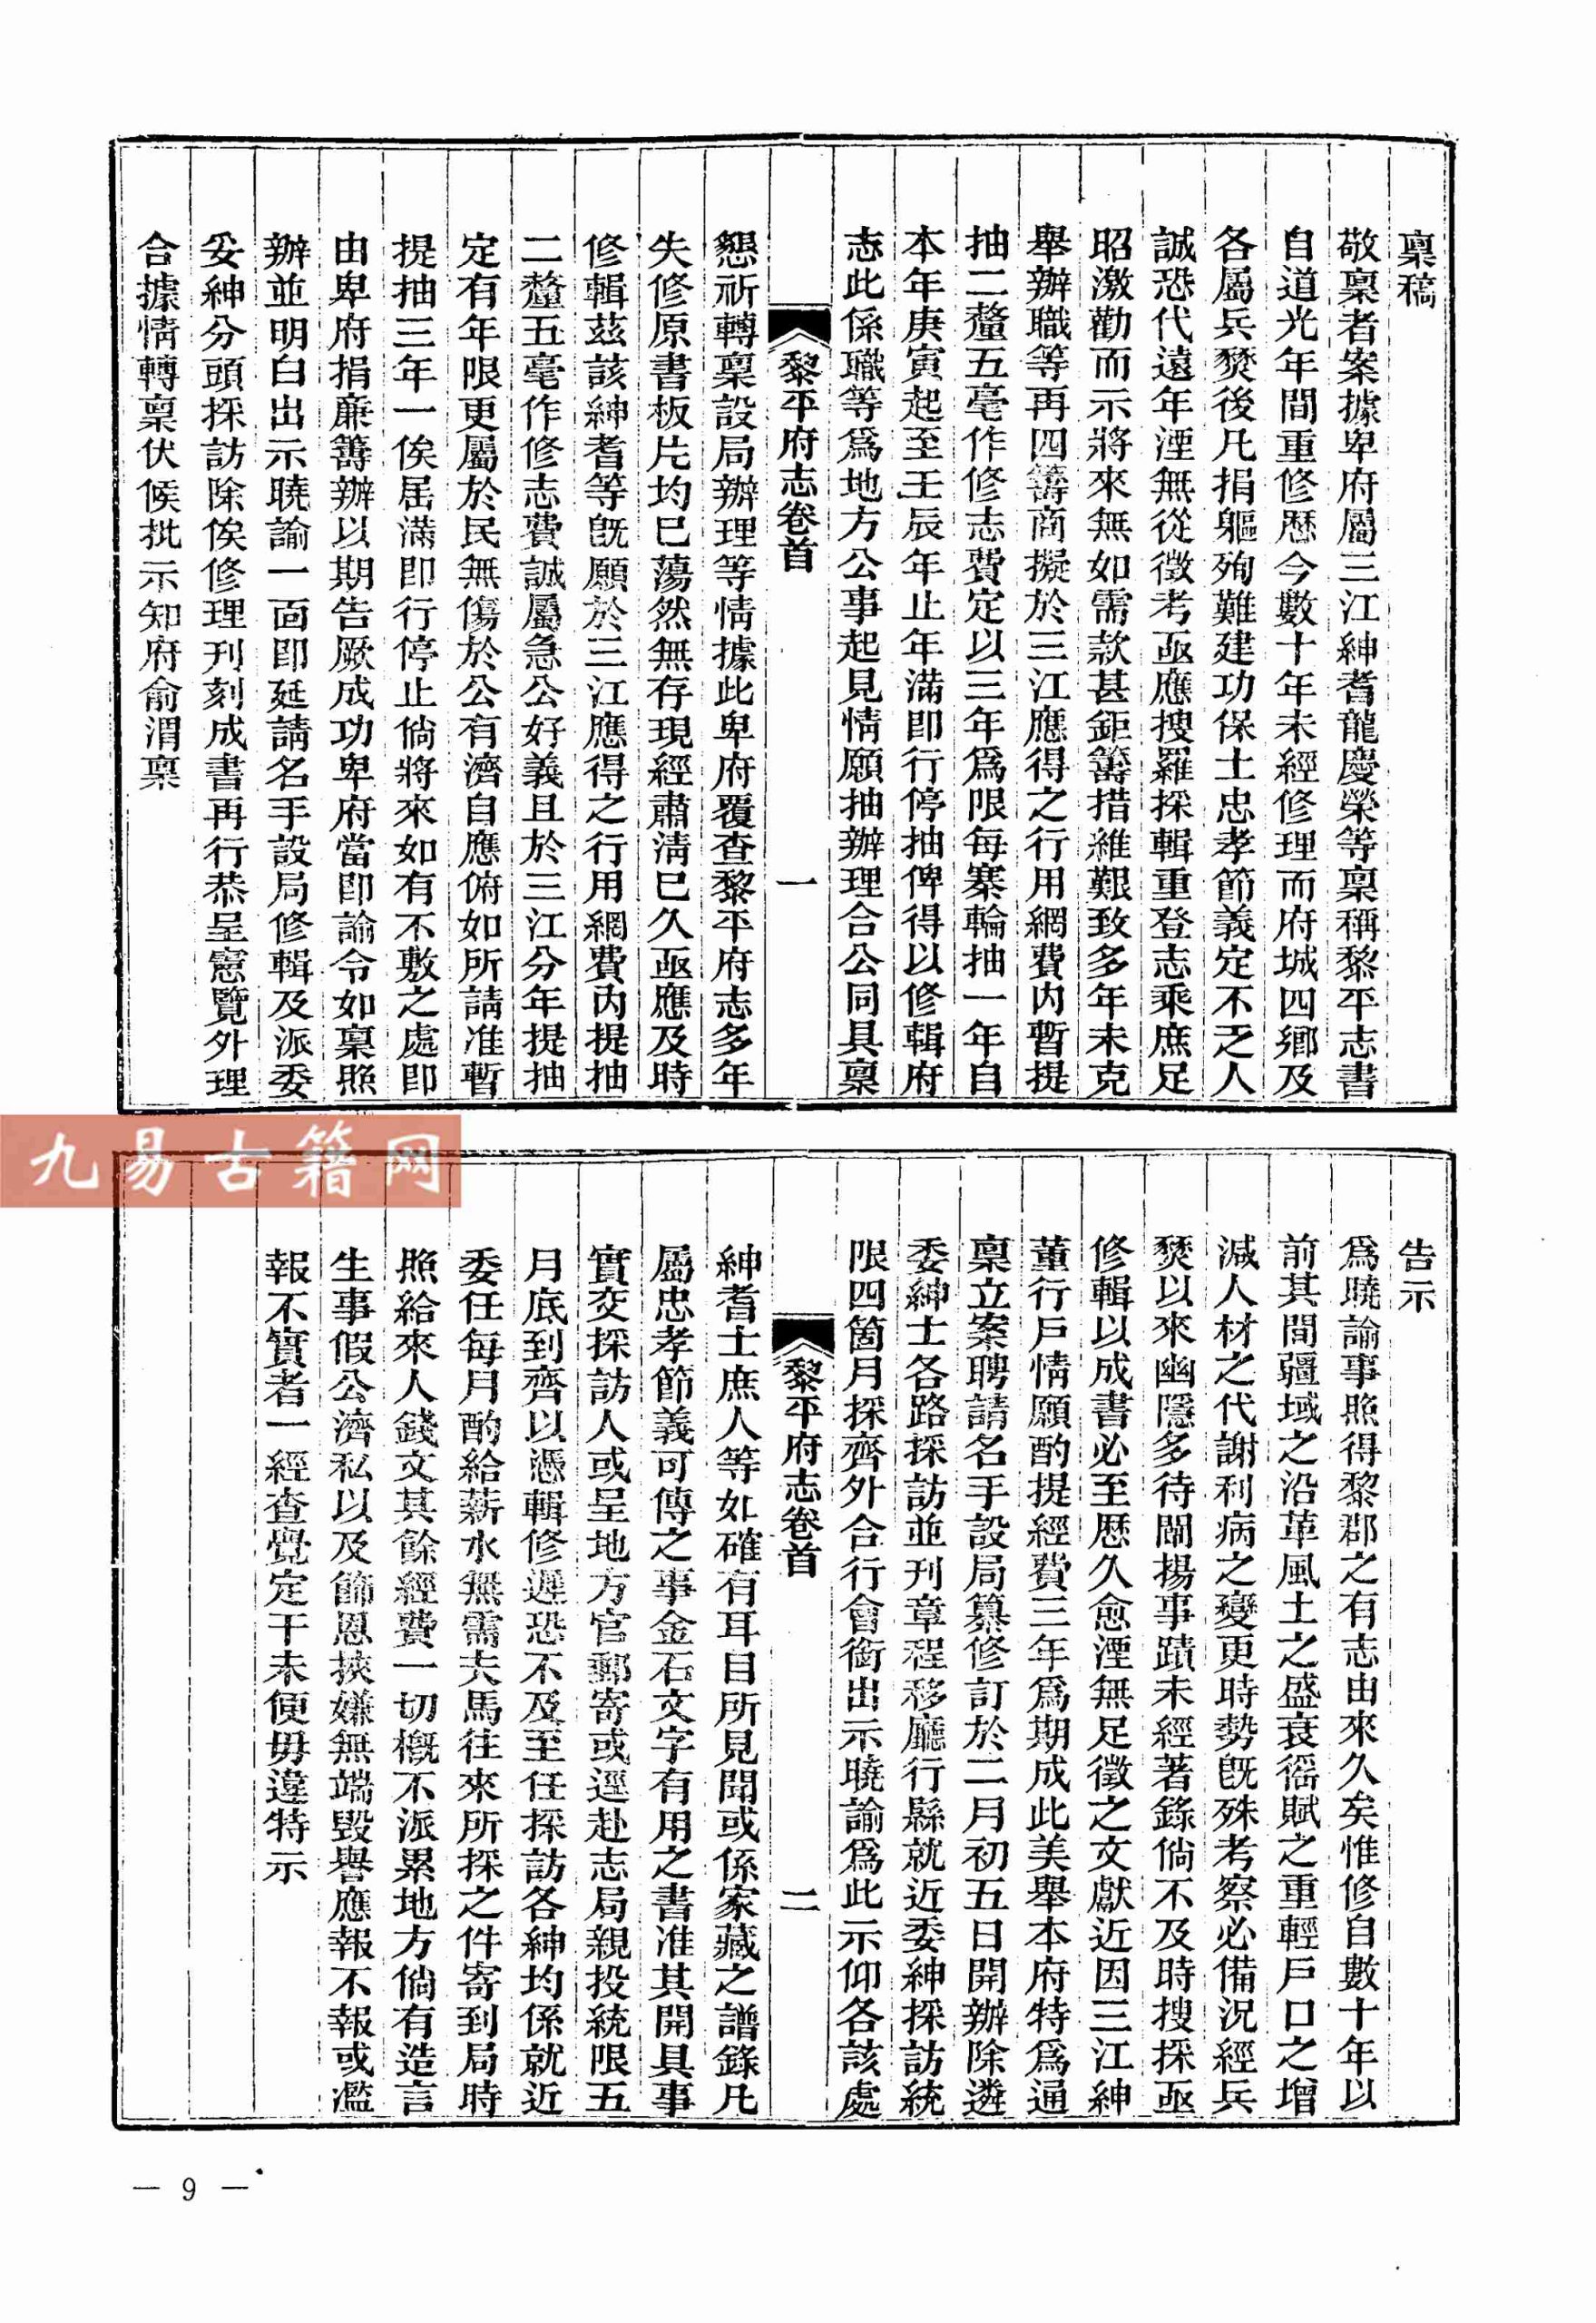 稟稿
敬稟者案據卑府屬三江紳耆龍慶榮等稟稱黎平志書
自道光年間重修歷今數十年未經修理而府城四鄉及
各屬兵燹後凡捐軀殉難建功保土忠孝節義定不乏人
誠恐代遠年湮無從徵考亟應搜羅採輯重登志乘庶足
昭激勸而示將來無如需款甚鉅籌措維艱致多年未克
舉辦職等再四籌商擬於三江應得之行用網費內暫提
抽二釐五毫作修志費定以三年為限每寨輪抽一年自
本年庚寅起至壬辰年止年滿即行停抽俾得以修輯府
志此係職等為地方公事起見情願抽辦理合公同具稟
黎平府志卷首
一
懇祈轉稟設局辦理等情據此卑府覆查黎平府志多年
失修原書板片均已蕩然無存現經肅清已久亟應及時
修輯茲該紳耆等既願於三江應得之行用網費內提抽
二釐五毫作修志費誠屬急公好義且於三江分年提抽
定有年限更屬於民無傷於公有濟自應俯如所請准暫
提抽三年一俟屆滿即行停止倘將來如有不敷之處即
由卑府捐廉籌辦以期告厥成功卑府當即諭令如稟照
辦並明白出示曉諭一面即延請名手設局修輯及派委
妥紳分頭採訪除俟修理刊刻成書再行恭呈憲覽外理
合據情轉稟伏候批示知府俞渭稟
告示
為曉諭事照得黎郡之有志由來久矣惟修自數十年以
前其間疆域之沿革風土之盛衰徭賦之重輕戶口之增
減人材之代謝利病之變更時勢既殊考察必備況經兵
燹以來幽隱多待闡揚事蹟未經著錄倘不及時搜採亟
修輯以成書必至歷久愈湮無足徵之文獻近因三江紳
董行戶情願酌提經費三年為期成此美舉本府特為通
稟立案聘請名手設局纂修訂於二月初五日開辦除遴
委紳士各路採訪並刊章程移廳行縣就近委紳採訪統
限四箇月採齊外合行會銜出示曉諭為此示仰各該處
黎平府志卷首
二
紳耆士庶人等如確有耳目所見聞或係家藏之譜錄凡
屬忠孝節義可傳之事金石文字有用之書准其開具事
實交採訪人或呈地方官郵寄或逕赴志局親投統限五
月底到齊以憑輯修遲恐不及至任採訪各紳均係就近
委任每月酌給薪水無需夫馬往來所採之件寄到局時
照給來人錢文其餘經費一切概不派累地方倘有造言
生事假公濟私以及飾恩挾嫌無端毀譽應報不報或濫
報不實者一經查覺定干未便毋違特示
九易古籍网
— 9 —